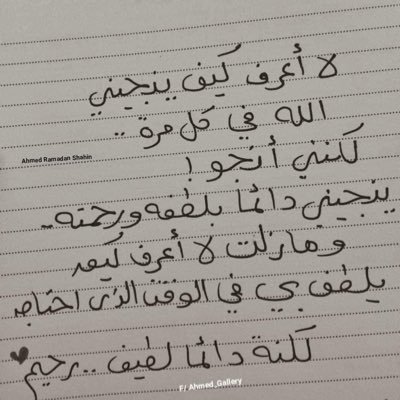 لا أعرف كيف ينجيني
الله في كل مرة ..
Ahmed Ramadan Shahin
لكنني أنجو !
ينجيني دائماً بلطفه ورحمته..
ومازلت لا أعرف كيف
يلطف بي في الوقت الذي احتاجه
لكنة دائما لطيف .. رحيم ♥
F/ Ahmed_Gallery